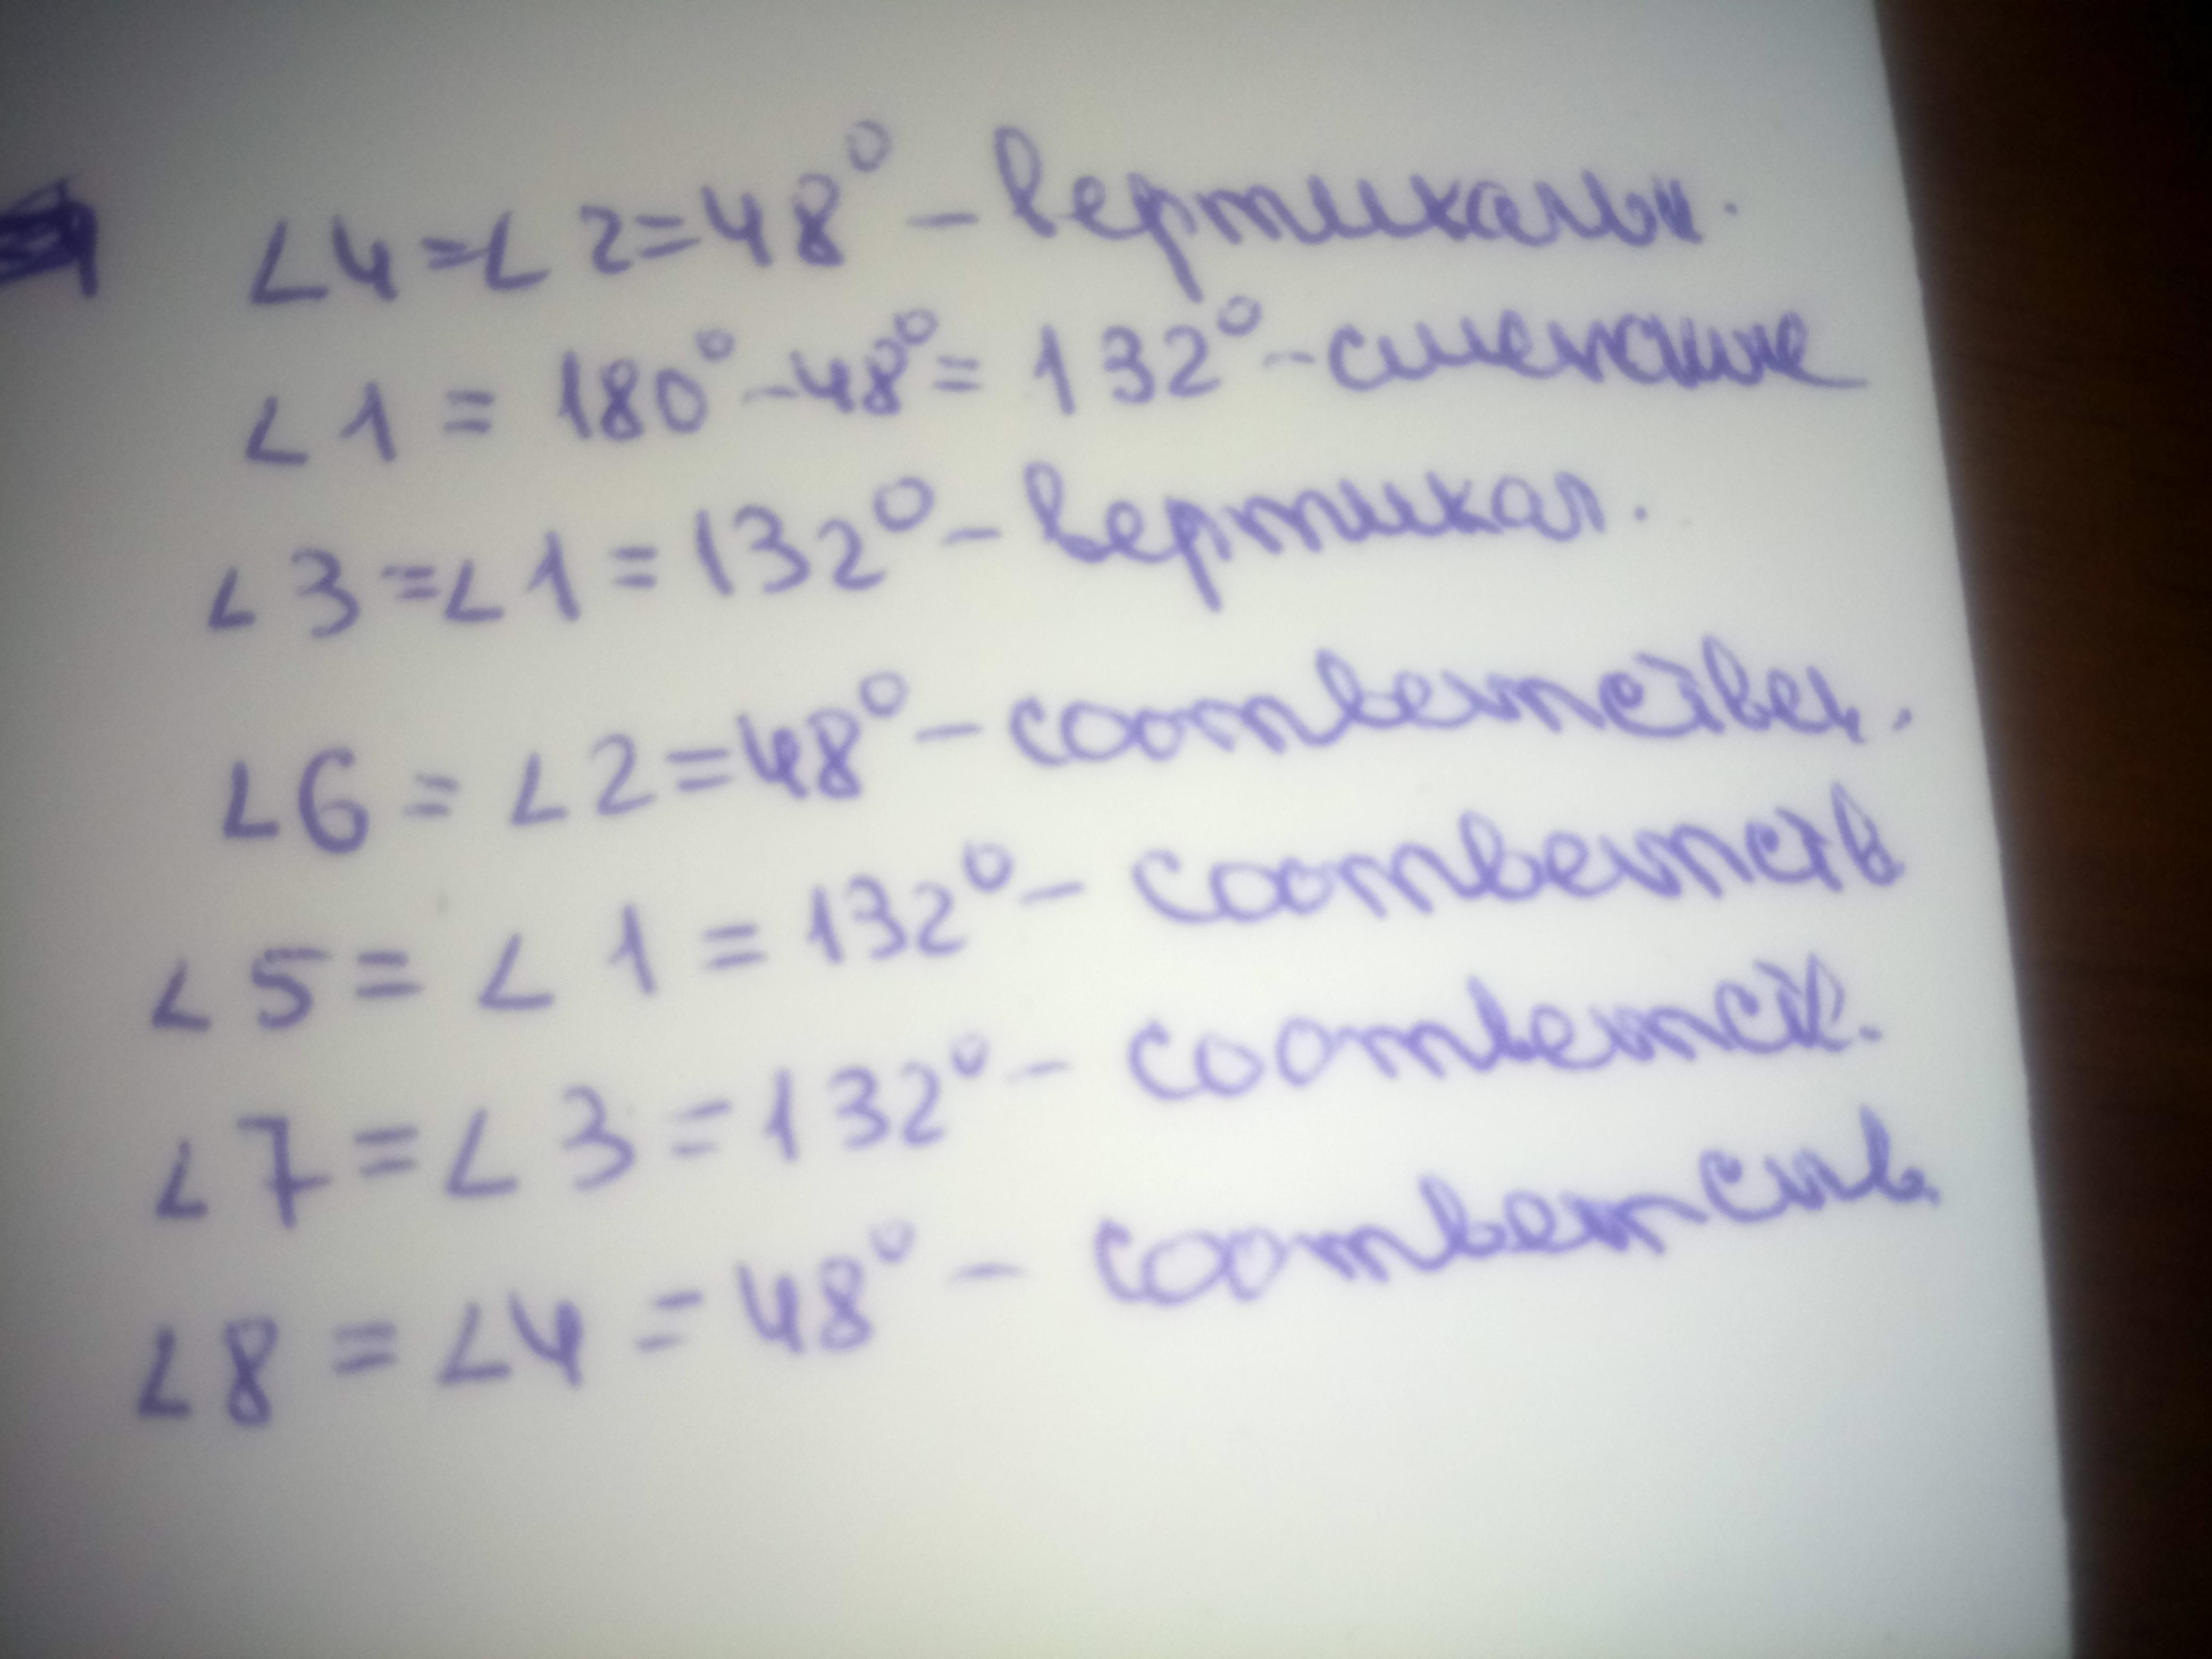 ∠4=∠2=48° – вертикальн.
∠1 = 180° – 48° = 132° –
∠3 =∠1 = 132° – вертикал.
∠6 = ∠2 = 48° – соответствен.
∠5 = ∠1 = 132° – соответств
∠7 = ∠3 = 132° – соответств.
∠8 = ∠4 = 48° – соответств.